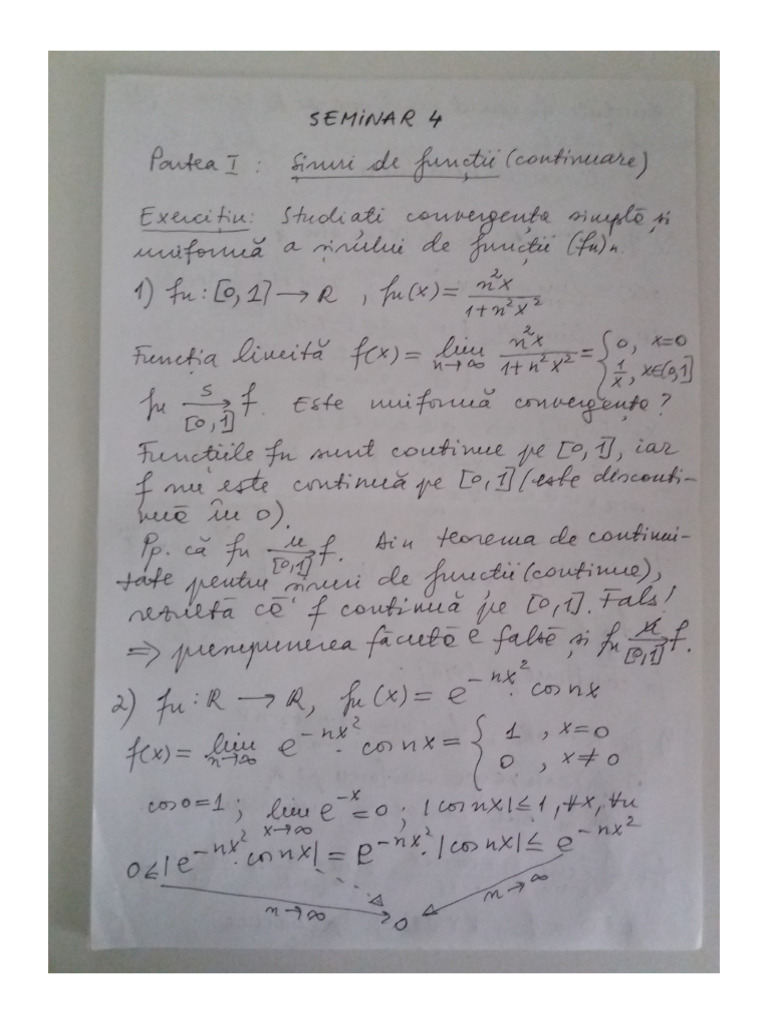 SEMINAR 4
Partea I : Șiruri de funcții (continuare)
Exercițiu: Studiați convergența simplă și
uniformă a șirului de funcții (fn)n.
1) fn : [0,1] → R , fn(x) = n²x / (1+n²x²)
Funcția limită f(x) = lim n→∞ n²x / (1+n²x²) = { 0, x=0
1/x, x∈(0,1]
fn →s [0,1] f. Este uniformă convergența?
Funcțiile fn sunt continue pe [0,1], iar
f nu este continuă pe [0,1] (este disconti-
nuă în 0).
Pp. că fn →u [0,1] f. Din teorema de continui-
tate pentru șiruri de funcții (continue),
rezultă că f continuă pe [0,1]. Fals!
⇒ presupunerea făcută e falsă și fn ↛u [0,1] f.
2) fn : R → R, fn(x) = e^(-nx²) · cos nx
f(x) = lim n→∞ e^(-nx²) · cos nx = { 1 , x=0
0 , x≠0
cos 0 = 1 ; lim x→∞ e^(-x) = 0 ; |cos nx| ≤ 1, ∀x, ∀n
0 ≤ |e^(-nx²) · cos nx| = e^(-nx²) · |cos nx| ≤ e^(-nx²)
n→∞ 0 n→∞